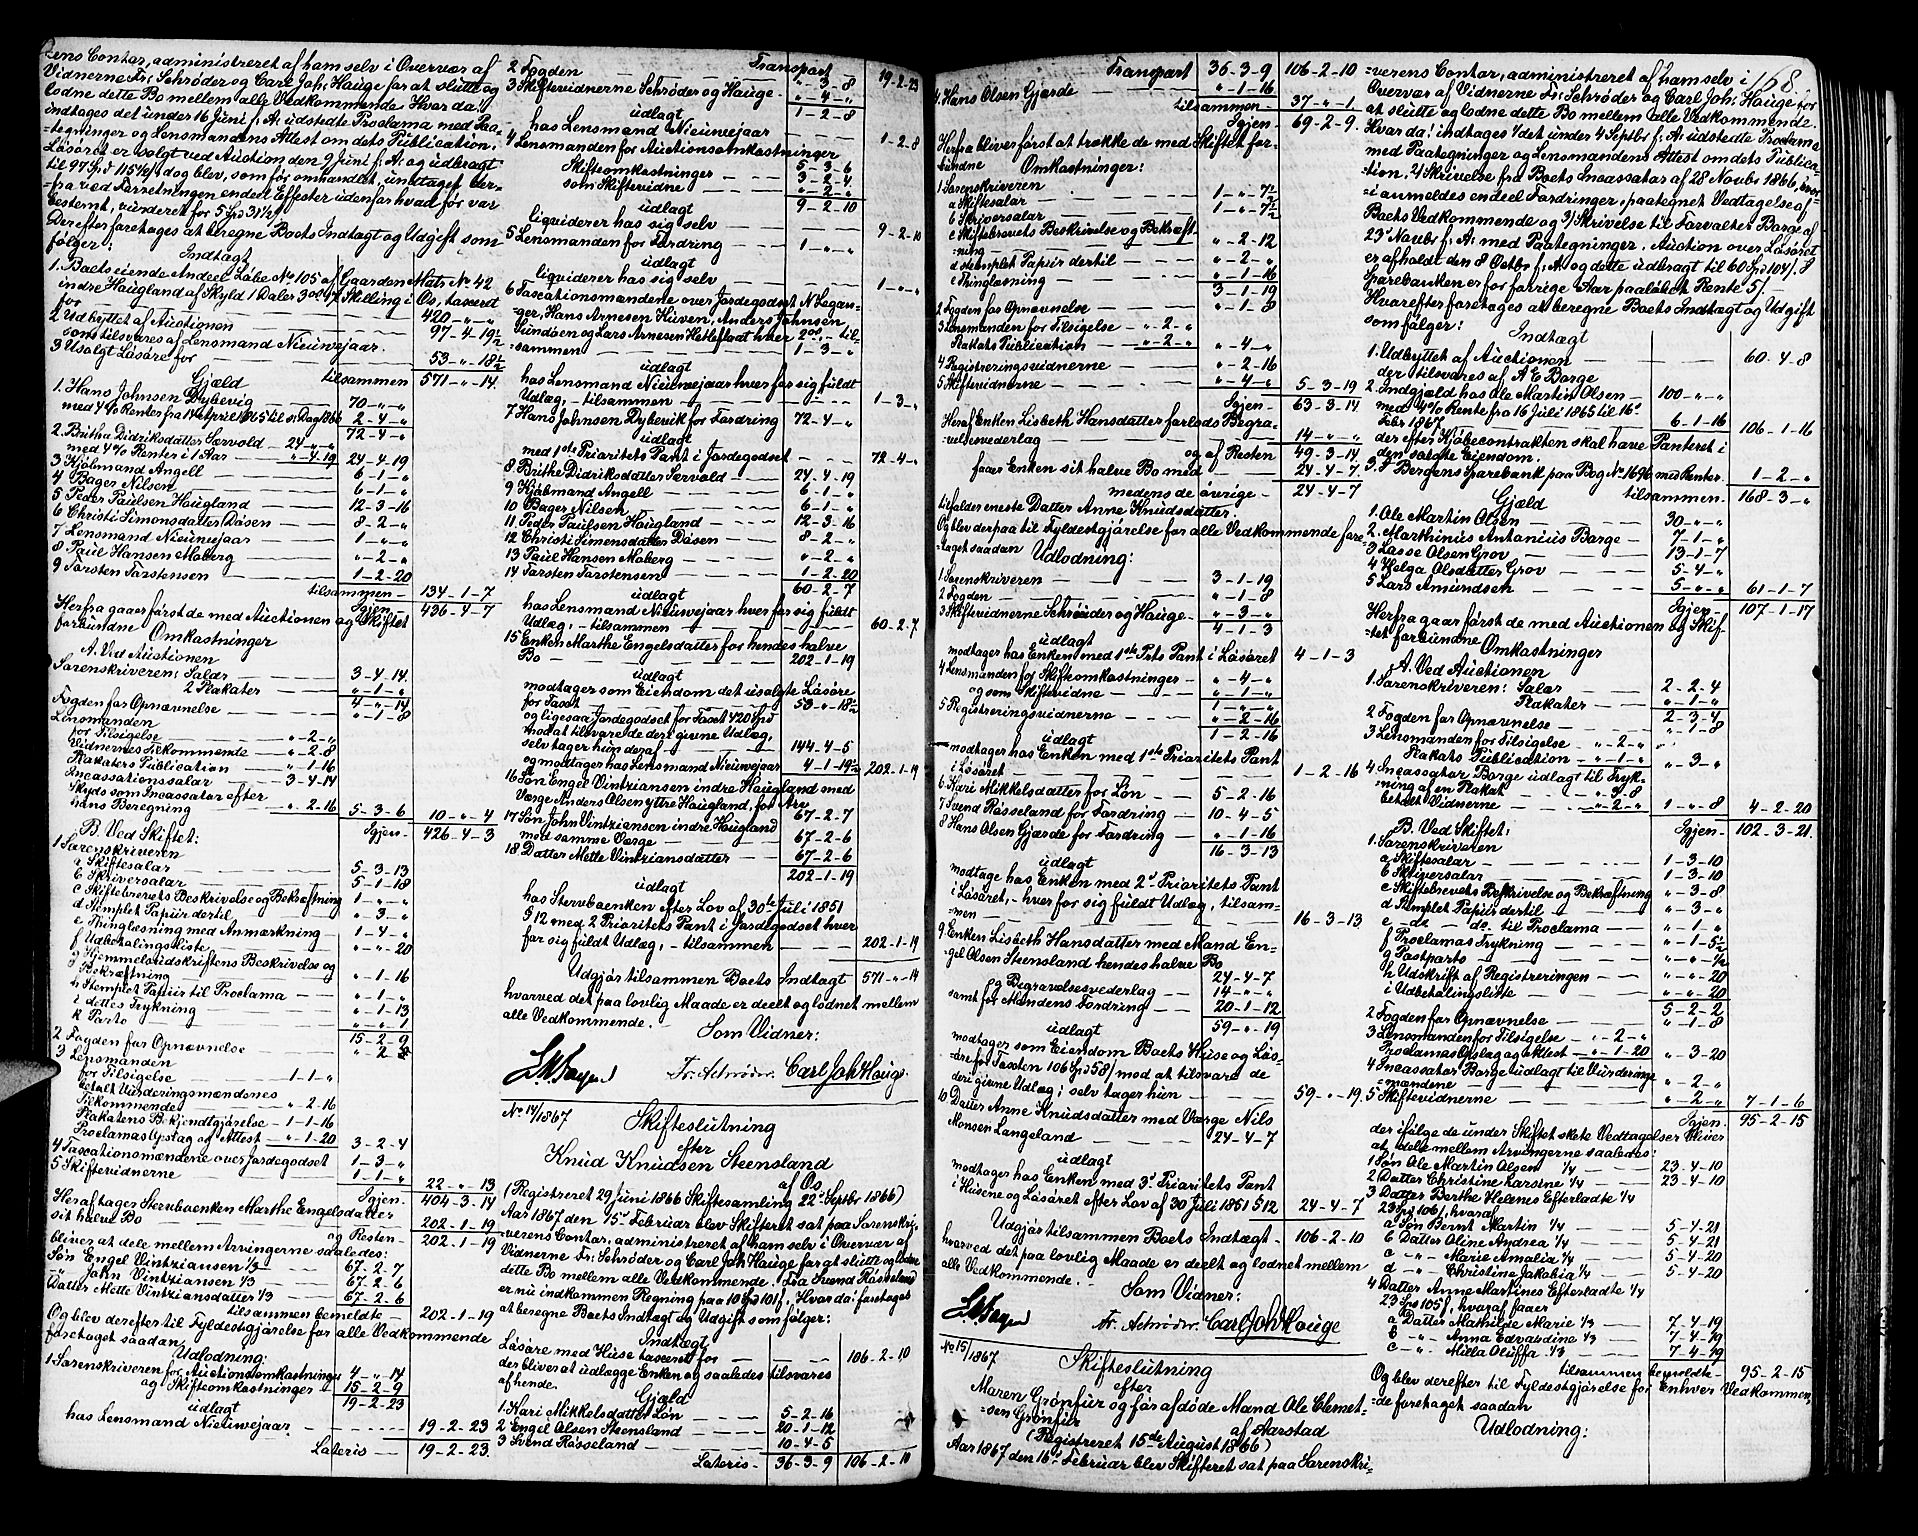 rens Contor, administreret af ham selv i Overvær af
Vidnerne Fr: Schrøder og Carl Joh: Hauge for at slutte og
lodne dette Bo mellem alle Vedkommende. Hvor da:
indtages det under 16 Juni f: A: udstedte Proclama med Paa-
=tegninger og Lensmandens Attest om dets Publication.
Løsøret er solgt ved Auction den 9 Juni f: A: og udbragt
til 97 Spd 115½ f d og blev, som før omhandlet, undtaget der-
=fra ved Forretningen endeel Effester udenfor hvad før var
bestemt, vurderet for 5 Spd 31½ f.
Derefter foretages at beregne Boets Indtægt og Udgift som
følger:
Indtægt
1. Boets eiende Andeel Løbe No 105 af Gaarden Mats No 42
indre Haugland af Skyld 1 Daler 3 Ort 17 Skilling i Os, taxeret
for — 420 - „ - „
2 Udbyttet af Auctionen — 97 - 4 - 19½
som tilsvares af Lensmand Nieuwejaar.
3 Usolgt Løsøre for — 53 - „ - 18½
tilsammen 571 - „ - 14.
Gjæld
1. Hans Johnsen Dybevig — 70 - „ - „
med 4% Renter fra 14 April 1865 til D: Dag 1866 2 - 4 - „
72 - 4 - „
2. Britha Didriksdatter Sørvold — 24 - „ - „
med 4% Renter i 1 Aar — „ - 4 - 19 24 - 4 - 19
3 Kjøbmand Angell — 6 - 1 - „
4 Bager Nilsen — 6 - 1 - „
5 Peder Paulsen Haugland — 12 - 3 - 16
6 Christi Simonsdatter Døsen — 8 - 2 - „
7 Lensmand Nieuwejaar — 1 - „ - „
8 Paul Hansen Moberg — „ - 2 - „
9 Torsten Torstensen — 1 - 2 - 20
tilsammen — 134 - 1 - 7
Igjen — 436 - 4 - 7
Herfra gaar først de med Auctionen og Skiftet
forbundne Omkostninger
A. Ved Auctionen
Sorenskriveren: Salær — 3 - 4 - 14.
2 Plakater — „ - 1 - „
4 - „ - 14
Fogden for Opnævnelse — „ - 1 - 8
Lensmanden
for Tilsigelse — „ - 2 - „
Vidnernes Tilkommende — „ - 2 - 8
Plakaters Publication — „ - 1 - 16
Incassationssalær — 3 - 4 - 14
Skyds som Incassator efter
hans Beregning — „ - 2 - 16 5 - 3 - 6 10 - „ - 4
Igjen — 426 - 4 - 3
B. Ved Skiftet:
1 Sorenskriveren
a Skiftesalær — 5 - 3 - 13
b Skriversalær — 5 - 1 - 18
c Skiftebrevets Beskrivelse og Bekræftning 1 - „ - „
d stemplet Papiir dertil — „ - 3 - „
e Thinglæsning med Anmærkning — 1 - 4 - „
f Udbetalingsliste — „ - „ - 20
g Hjemmelsudskriftens Beskrivelse og
Bekræftning — „ - 1 - 16
h Stemplet Papiir til Proclama — „ - 1 - „
i dettes Trykning — „ - 1 - 13
k Porto — „ - „ - 1
15 - 2 - 9
2 Fogden for Opnævnelse — „ - 2 - 8
3 Lensmanden
for Tilsigelse — 1 - 1 - „
betalt Vurderingsmændenes
Tilkommende — „ - 2 - 16
Plakatens Bekjendtgjørelse — 1 - 1 - 16
Proclamas Opslag og Attest — „ - 1 - 20 3 - 2 - 4
4 Taxationsmændene over Jordegodset 1 - 3 - „
5 Skiftevidnerne — 1 - 1 - „
22 - „ - 13
Igjen — 404 - 3 - 14
Heraf tager Stervboenken Marthe Engelsdatter
sit halve Bo — 202 - 1 - 19
og Resten — 202 - 1 - 19
bliver at dele mellem Arvingerne saaledes:
Søn Engel Vintziansen 1/3 — 67 - 2 - 7
-„- John Vintziansen 1/3 — 67 - 2 - 6
Datter Mette Vintziansdatter 1/3 — 67 - 2 - 6
tilsammen bemeldte — 202 - 1 - 19
Og blev derefter til Fyldestgjørelse for alle Vedkommende
foretaget saadan
Udlodning:
1 Sorenskriveren for Auctionsomkostninger 4 - „ - 14
og Skifteomkostninger — 15 - 2 - 9
19 - 2 - 23
udlagt
hos Lensmand Nieuwejaar — 19 - 2 - 23
Lateris — 19 - 2 - 23.
Transport 19 - 2 - 23
2 Fogden — „ - 3 - 8
3 Skiftevidnerne Schrøder og Hauge — „ - 4 - „
1 - 2 - 8
udlagt
hos Lensmand Nieuwejaar — 1 - 2 - 8
4 Lensmanden for Auctionsomkostninger 5 - 3 - 6
Skifteomkostninger — 3 - 2 - 4
som Skiftevidne — „ - 2 - „
9 - 2 - 10
udlagt
liquiderer hos sig selv — 9 - 2 - 10
5 Lensmanden for Fordring — 1 - „ - „
udlagt
liquiderer hos sig selv — 1 - „ - „
6 Taxationsmændene over Jordegodset N Legan-
ger, Hans Arnesen Haven, Anders Johnsen
Sundøen og Lars Arnesen Hetleflodt hver 2 ort — til-
=sammen — 1 - 3 - „
udlagt
hos Lensmand Nieuwejaar hver for sig fuldt
Udlæg, - tilsammen — 1 - 3 - „
7 Hans Johnsen Dybevik for Fordring 72 - 4 - „
udlagt
med 1ste Prioritets Pant i Jordegodset — 72 - 4 - „
8 Brithe Didriksdatter Sørvold — 24 - 4 - 19
9 Kjøbmand Angell — 6 - 1 - „
10 Bager Nilsen — 6 - 1 - „
11 Peder Paulsen Haugland — 12 - 3 - 16
12 Christi Simensdatter Døsen — 8 - 2 - „
13 Paul Hansen Moberg — „ - 2 - „
14 Torsten Torstensen — 1 - 2 - 20
60 - 2 - 7
udlagt
hos Lensmand Nieuwejaar hver for sig fuldt
Udlæg, - tilsammen — 60 - 2 - 7
15 Enken Marthe Engelsdatter for hendes halve
Bo — 202 - 1 - 19
udlagt
modtager som Eiendom det usolgte Løsøre
for Taxt — 53 - „ - 18½
og ligesaa Jordegodset for Taxt 420 Spd
mod at tilsvare de deri givne Udlæg,
selv tager hun deraf — 144 - 4 - 5
og modtager hos Lensmand Nieuwejaar 4 - 1 - 19½ 202 - 1 - 19
16 Søn Engel Vintziansen indre Haugland med
Værge Anders Olsen ytre Haugland, for Arv 67 - 2 - 7
17 Søn John Vintziansen indre Haugland
med samme Værge — 67 - 2 - 6
18 Datter Mette Vintziansdatter — 67 - 2 - 6
202 - 1 - 19
udlagt
hos Stervboenken efter Lov af 30te Juli 1851
§ 12 med 2 Prioritets Pant i Jordegodset hver
for sig fuldt Udlæg, - tilsammen — 202 - 1 - 19
Udgjør tilsammen Boets Indtægt 571 - „ - 14
hvorved det paa lovlig Maade er deelt og lodnet mellem
alle Vedkommende. -
Som Vidner:
Fr. Schrøder. Carl Joh Hauge.
No 14/1867
Skifteslutning
efter
Knud Knudsen Steensland
af Os
(Registreret 29 Juni 1866 Skiftesamling 22d Septbr 1866)
Aar 1867 den 15d Februar blev Skifteret sat paa Sorenskri-
verens Contor, administreret af ham selv i Overvær af
Vidnerne Fr: Schrøder og Carl Joh Hauge for at slutte og lodne
dette Bo mellem alle Vedkommende. Fra Svend Røsseland
er nu indkommen Regning paa 10 Spd 101 f, Hvor da: foretages
at beregne Boets Indtægt og Udgift som følger:
Indtægt
Løsøre med Huse taxeret for — 106 - 2 - 10
der bliver at udlægge Enken og saaledes tilsvares
af hende.
Gjæld
1 Kari Mikkelsdatter Løn — 5 - 2 - 16
2 Engel Olsen Steensland — 20 - 1 - 12
3 Svend Røsseland — 10 - 4 - 5
Lateris — 36 - 3 - 9 106 - 2 - 10
168
Transport 36 - 3 - 9 106 - 2 - 10
4. Hans Olsen Gjærde — „ - 1 - 16
tilsammen — 37 - „ - 1
Igjen — 69 - 2 - 9.
Herfra bliver først at trække de med Skiftet for-
bundne Omkostninger:
1 Sorenskriveren
a Skiftesalær — 1 - „ - 7½
b Skriversalær — 1 - „ - 7½
c Skiftebrevets Beskrivelse og Bekræft-
ning — „ - 2 - 12
d stemplet Papiir dertil — „ - 2 - „
e Tinglæsning — „ - 1 - 16
3 - 1 - 19
2 Fogden for Opnævnelse — „ - 1 - 8
3 Lensmanden for Tilsigelse — „ - 2 - „
Plakats Publication — „ - 2 - „ „ - 4 - „
4 Registreringsvidnerne — „ - 2 - 16
5 Skiftevidnerne — „ - 4 - „ 5 - 3 - 19
Igjen — 63 - 3 - 14
Heraf Enken Lisbeth Hansdatter forlods Begra-
velsesvederlag — 14 - „ - „
og af Resten — 49 - 3 - 14
faar Enken sit halve Bo med — 24 - 4 - 7
medens de øvrige — 24 - 4 - 7
tilfalder eneste Datter Anne Knudsdatter.
Og blev derpaa til Fyldestgjørelse for alle Vedkommende fore-
=taget saadan Udlodning:
1 Sorenskriveren — 3 - 1 - 19
2 Fogden — „ - 1 - 8
3 Skiftevidnerne Schrøider og Hauge — „ - 3 - „
4 - 1 - 3
udlagt
modtager hos Enken med 1ste Prts Pant i Løsøret 4 - 1 - 3
4 Lensmanden for Skifteomkostninger — „ - 4 - „
og som Skiftevidne — „ - 1 - „
1 - „ - „
5 Registreringsvidnerne — „ - 2 - 16
1 - 2 - 16
udlagt
modtager hos Enken med 1ste Prioritets Pant
i Løsøret — 1 - 2 - 16
6 Kari Mikkelsdatter for Løn — 5 - 2 - 16
7 Svend Røsseland for Fordring — 10 - 4 - 5
8 Hans Olsen Gjærde for Fordring — „ - 1 - 16
16 - 3 - 13
udlagt
modtage hos Enken med 2d Prioritets Pant
i Løsøret, - hver for sig fuldt Udlæg, tilsam-
=men — 16 - 3 - 13
9 Enken Lisbeth Hansdatter med Mand En-
gel Olsen Steensland hendes halve Bo
24 - 4 - 7
og Begravelsesvederlag — 14 - „ - „
samt for Mandens Fordring — 20 - 1 - 12
59 - „ - 19
udlagt
modtager som Eiendom Boets Huse og Løs-
øre for Taxten 106 Spd 58 f mod at tilsvare de
deri givne Udlæg; selv tager hun — 59 - „ - 19
10 Datter Anne Knudsdatter med Værge Nils
Monsen Langeland — 24 - 4 - 7
udlagt
modtager hos Enken med 3d Prioritets Pant
i Husene og Løsøret efter Lov af 30 Juli 1851 § 12 24 - 4 - 7
Udgjør tilsammen Boets Indtægt — 106 - 2 - 10
hvorved det paa lovlig Maade er deelt og lodnet mellem
alle Vedkommende.
Som Vidner:
Fr. Schrøder. Carl Joh Hauge
No 15/1867
Skifteslutning
efter
Maren Grønfur og før afdøde Mand Ole Clemet-
=sen Grønfur af Aarstad
(Registreret 15de August 1866)
Aar 1867 den 16d Februar blev Skifteret sat paa Sorenskri-
=verens Contor, administreret af ham selv i
Overvær af Vidnerne Fr: Schrøder og Carl Joh: Hauge for
at slutte og lodne dette Bo mellem alle Vedkommende.
Hvor da: indtages 1 det under 4 Septbr f: A: udstedte Proclama
med Paategninger og Lensmandens Attest om dets Publica-
tion. 2/ Skrivelse fra Boets Incassator af 28 Novbr 1866, hvor-
=i anmeldes endeel Fordringer, paategnet Vedtagelse af
Boets Vedkommende og 3/ Skrivelse til Forvalter Borge af
23d Novbr f: A: med Paategninger. Auction over Løsøret
er afholdt den 8 Octbr f: A: og dette udbragt til 60 Spd 104 f. I
Sparebanken er for forrige Aar paaløbet Rente 5 f.
Hvorefter foretages at beregne Boets Indtægt og Udgift
som følger:
Indtægt
1. Udbyttet af Auctionen — 60 - 4 - 8
der tilsvares af A E Borge
2. Indgjæld hos Ole Martin Olsen 100 - „ - „
med 4% Rente fra 16 Juli 1865 til 16d
Febr 1867 — 6 - 1 - 16 106 - 1 - 16
der efter Kjøbecontrakten skal have Panteret i
den solgte Eiendom.
3. I Bergens Sparebank paa Bog No 1696 med Renter. 1 - 2 - „
tilsammen — 168 - 3 - „
Gjæld
1. Ole Martin Olsen — 30 - „ - „
2. Marthinus Antonius Borge — 7 - 1 - „
3 Lasse Olsen Grov — 13 - 1 - 7
4 Helga Olsdatter Grov — 5 - 4 - „
5 Lars Amundsen — 5 - „ - „ 61 - 1 - 7
Igjen — 107 - 1 - 17
Herfra gaar først de med Auctionen og Skif-
tet forbundne Omkostninger
A. Ved Auctionen
1. Sorenskriveren: Salær — 2 - 2 - 4
Plakater — „ - 1 - „
2 - 3 - 4
2 Fogden for Opnævnelse — „ - 1 - 8
3 Lensmanden for Tilsigelse — „ - 2 - „
Plakats Publication — „ - 1 - „ „ - 3 - „
4 Incassator Borge udlagt til Tryk-
ning af en Plakat — „ - 4 - 8
betalt Vidnerne — „ - 2 - „ 1 - „ - 8 4 - 2 - 20
Igjen — 102 - 3 - 21.
B. Ved Skiftet:
1. Sorenskriveren
a Skiftesalær — 1 - 3 - 10
b Skriversalær — 1 - 3 - 10
c Skiftebrevets Beskrivelse og Bekræftning „ - 3 - 8
d Stemplet Papiir dertil — „ - 3 - „
e do — do til Proclama — „ - 1 - „
f Proclamas Trykning — „ - 1 - 5½
g Postporto — „ - „ - ½
h Udskrift af Registreringen — „ - „ - 20
i Udbetalingsliste — „ - „ - 20
5 - 2 - 2
2 Fogden for Opnævnelse — „ - 1 - 8
3 Lensmanden for Tilsigelse — „ - 2 - „
Proclamas Opslag og Attest — „ - 1 - 20 „ - 3 - 20
4 Incassator Borge udlagt til Vurderings-
=mændene — „ - 2 - „
5 Skiftevidnerne — „ - 2 - „ 7 - 1 - 6
Igjen — 95 - 2 - 15
der ifølge de under Skiftet skete Vedtagelser bliver
at dele mellem Arvingerne saaledes:
1 Søn Ole Martin Olsen 1/4 — 23 - 4 - 10
2 Datter Christine Larsine 1/4 — 23 - 4 - 10
3 Datter Berthe Helenes Efterladte 1/4
23 Spd 106 f, hvoraf
a Søn Bernt Martin 1/4 — 5 - 4 - 21
b Datter Oline Andrea 1/4 — 5 - 4 - 21
c -„- Marie Amalia 1/4 — 5 - 4 - 20
d -„- Christine Jakobia 1/4 — 5 - 4 - 20
4 Datter Anne Martines Efterladte 1/4
23 Spd 105 f, hvoraf faaer
a Datter Mathilde Marie 1/3 — 7 - 4 - 19
b -„- Anna Edvardine 1/3 — 7 - 4 - 19
c -„- Milla Oluffa 1/3 — 7 - 4 - 19
tilsammen bemeldte — 95 - 2 - 15
Og blev derefter til Fyldestgjørelse for Enhver Vedkommen-
=de foretaget saadan
Udlodning: